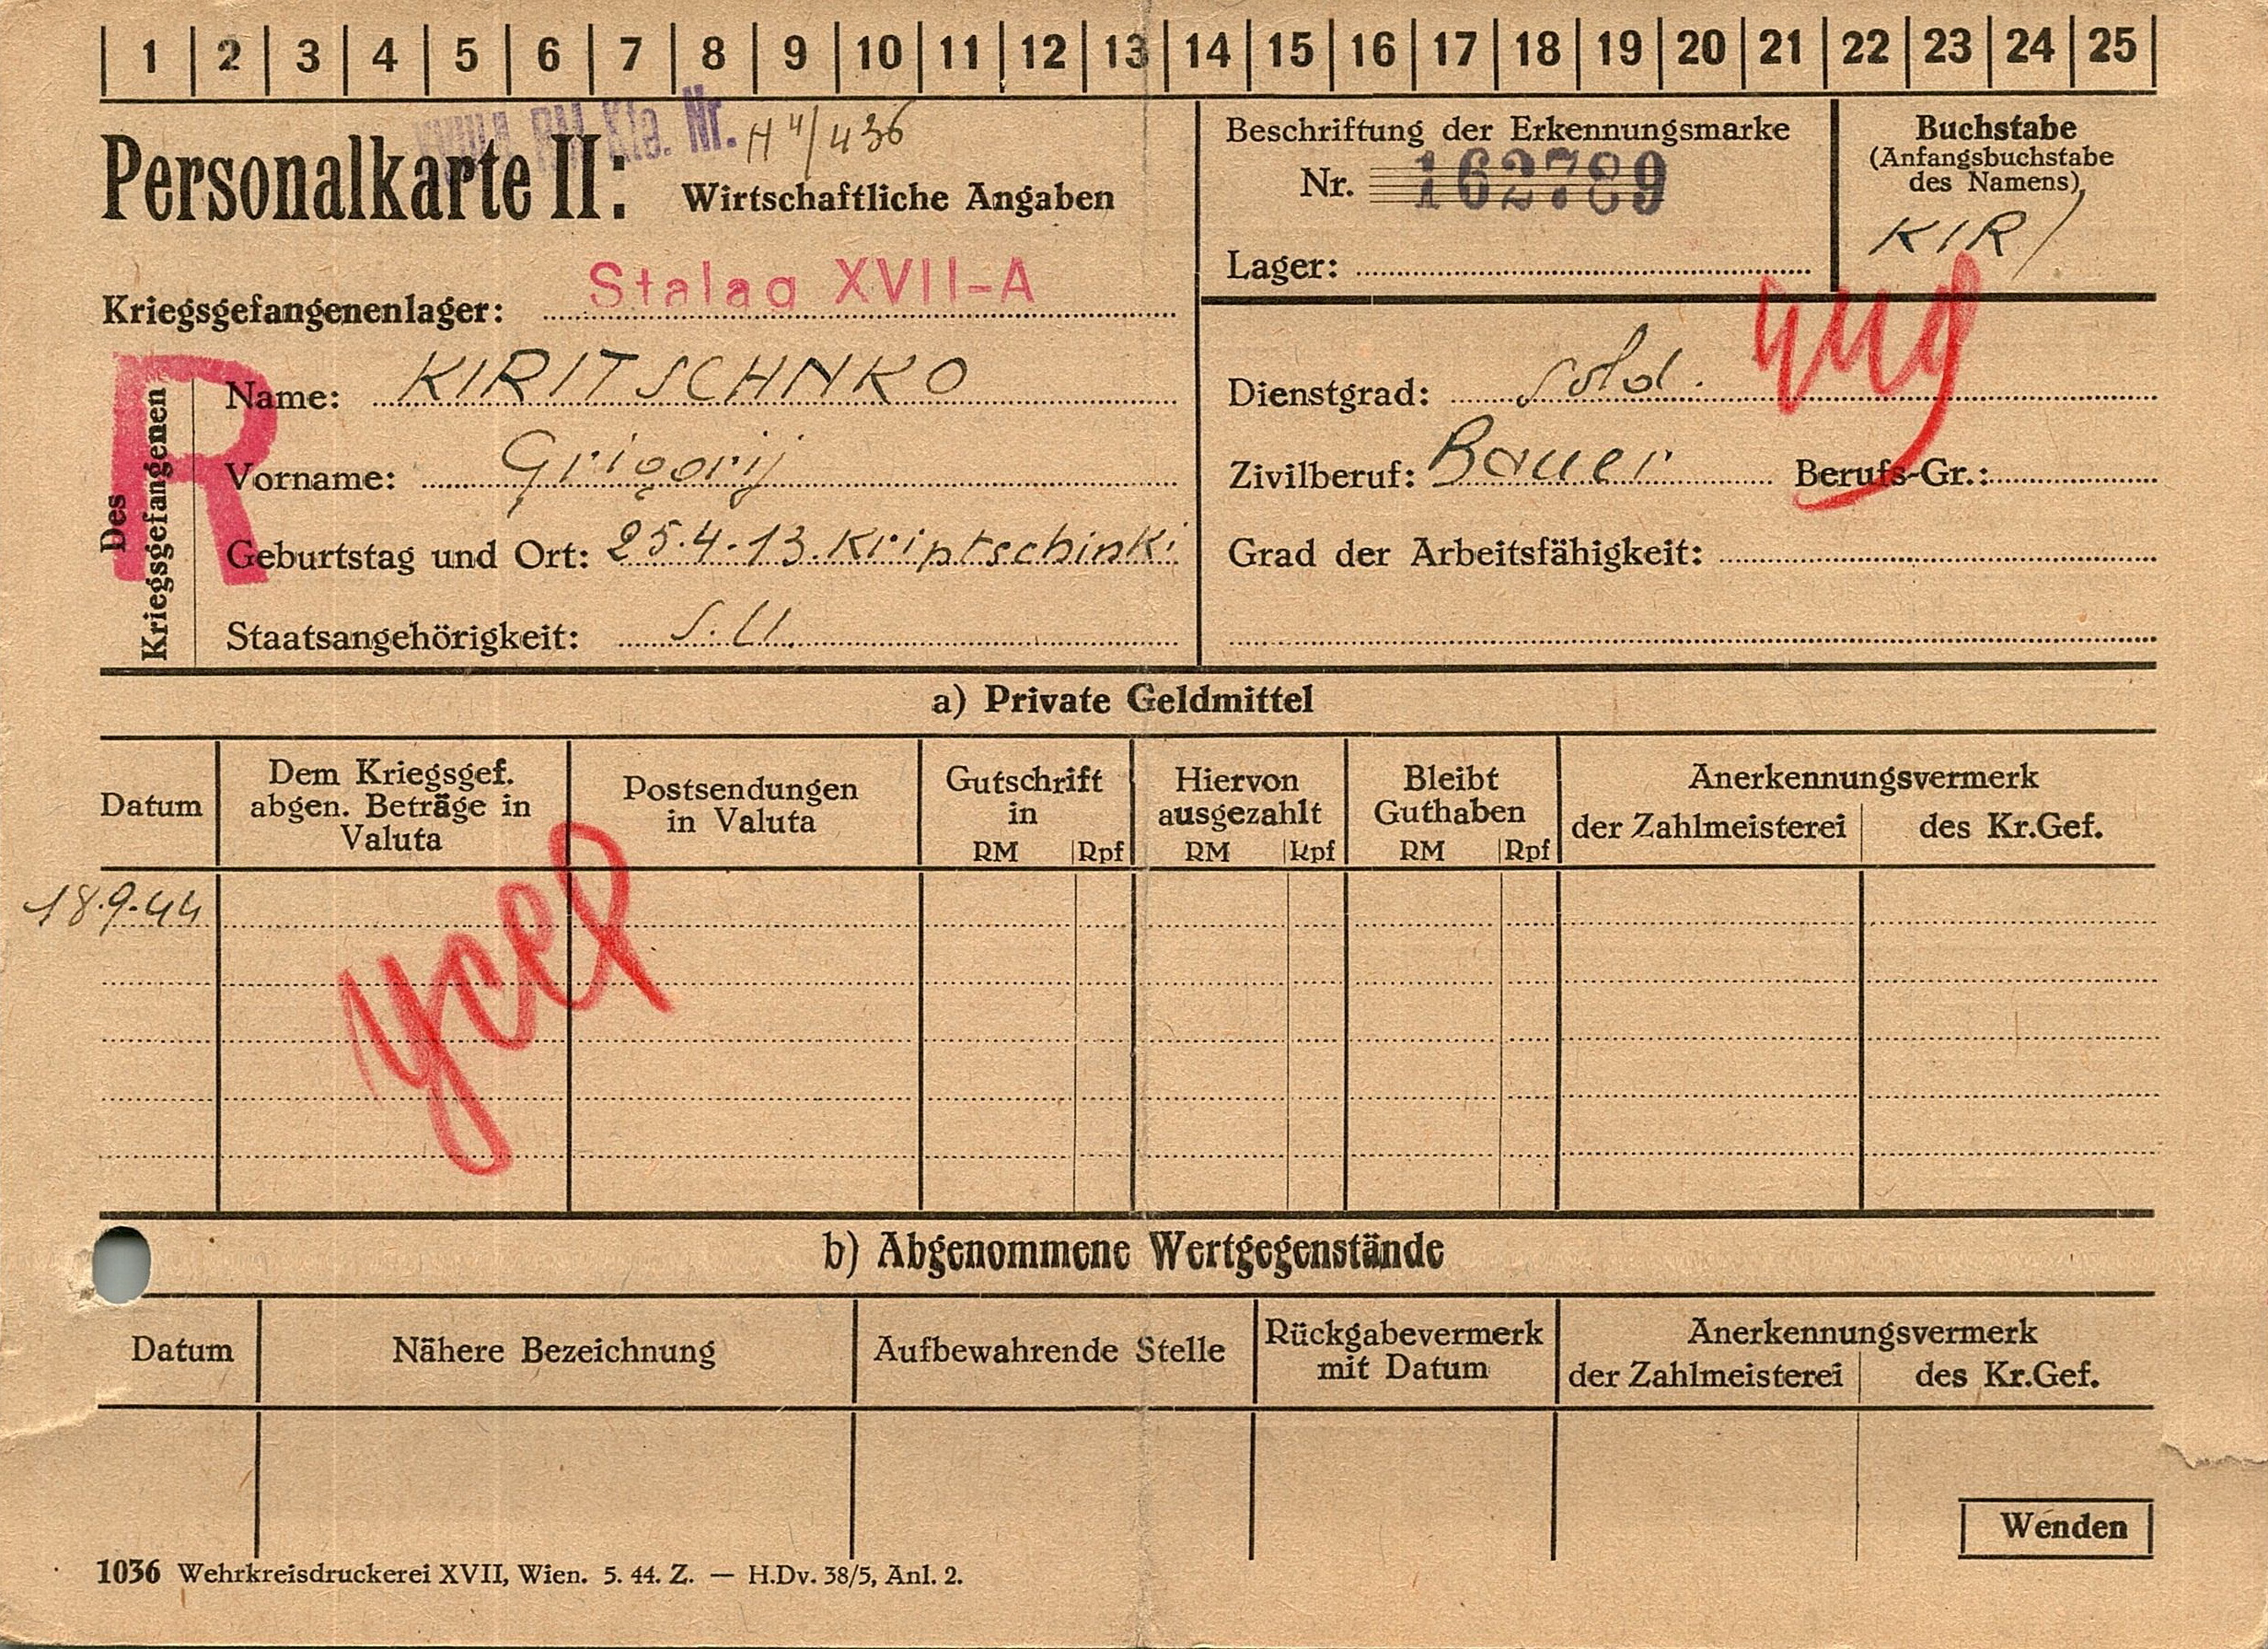 1 2 3 4 5 6 7 8 9 10 11 12 13 14 15 16 17 18 19 20 21 22 23 24 25
RM Kte. Nr. H 4/436
Personalkarte II: Wirtschaftliche Angaben
Kriegsgefangenenlager: Stalag XVII-A
Beschriftung der Erkennungsmarke
Nr. 162789
Lager:
Buchstabe
(Anfangsbuchstabe
des Namens)
KIR
Des
Kriegsgefangenen
R
Name: KIRITSCHNKO
Vorname: Grigorij
Geburtstag und Ort: 25.4.13. Kriptschinki
Staatsangehörigkeit: S.U.
Dienstgrad: Sold.
Zivilberuf: Bauer Berufs-Gr.:
Grad der Arbeitsfähigkeit:
a) Private Geldmittel
Datum
Dem Kriegsgef.
abgen. Beträge in
Valuta
Postsendungen
in Valuta
Gutschrift
in
RM Rpf
Hiervon
ausgezahlt
RM Rpf
Bleibt
Guthaben
RM Rpf
Anerkennungsvermerk
der Zahlmeisterei des Kr.Gef.
18.9.44
b) Abgenommene Wertgegenstände
Datum
Nähere Bezeichnung
Aufbewahrende Stelle
Rückgabevermerk
mit Datum
Anerkennungsvermerk
der Zahlmeisterei des Kr.Gef.
Wenden
1036 Wehrkreisdruckerei XVII, Wien. 5. 44. Z. — H.Dv. 38/5, Anl. 2.